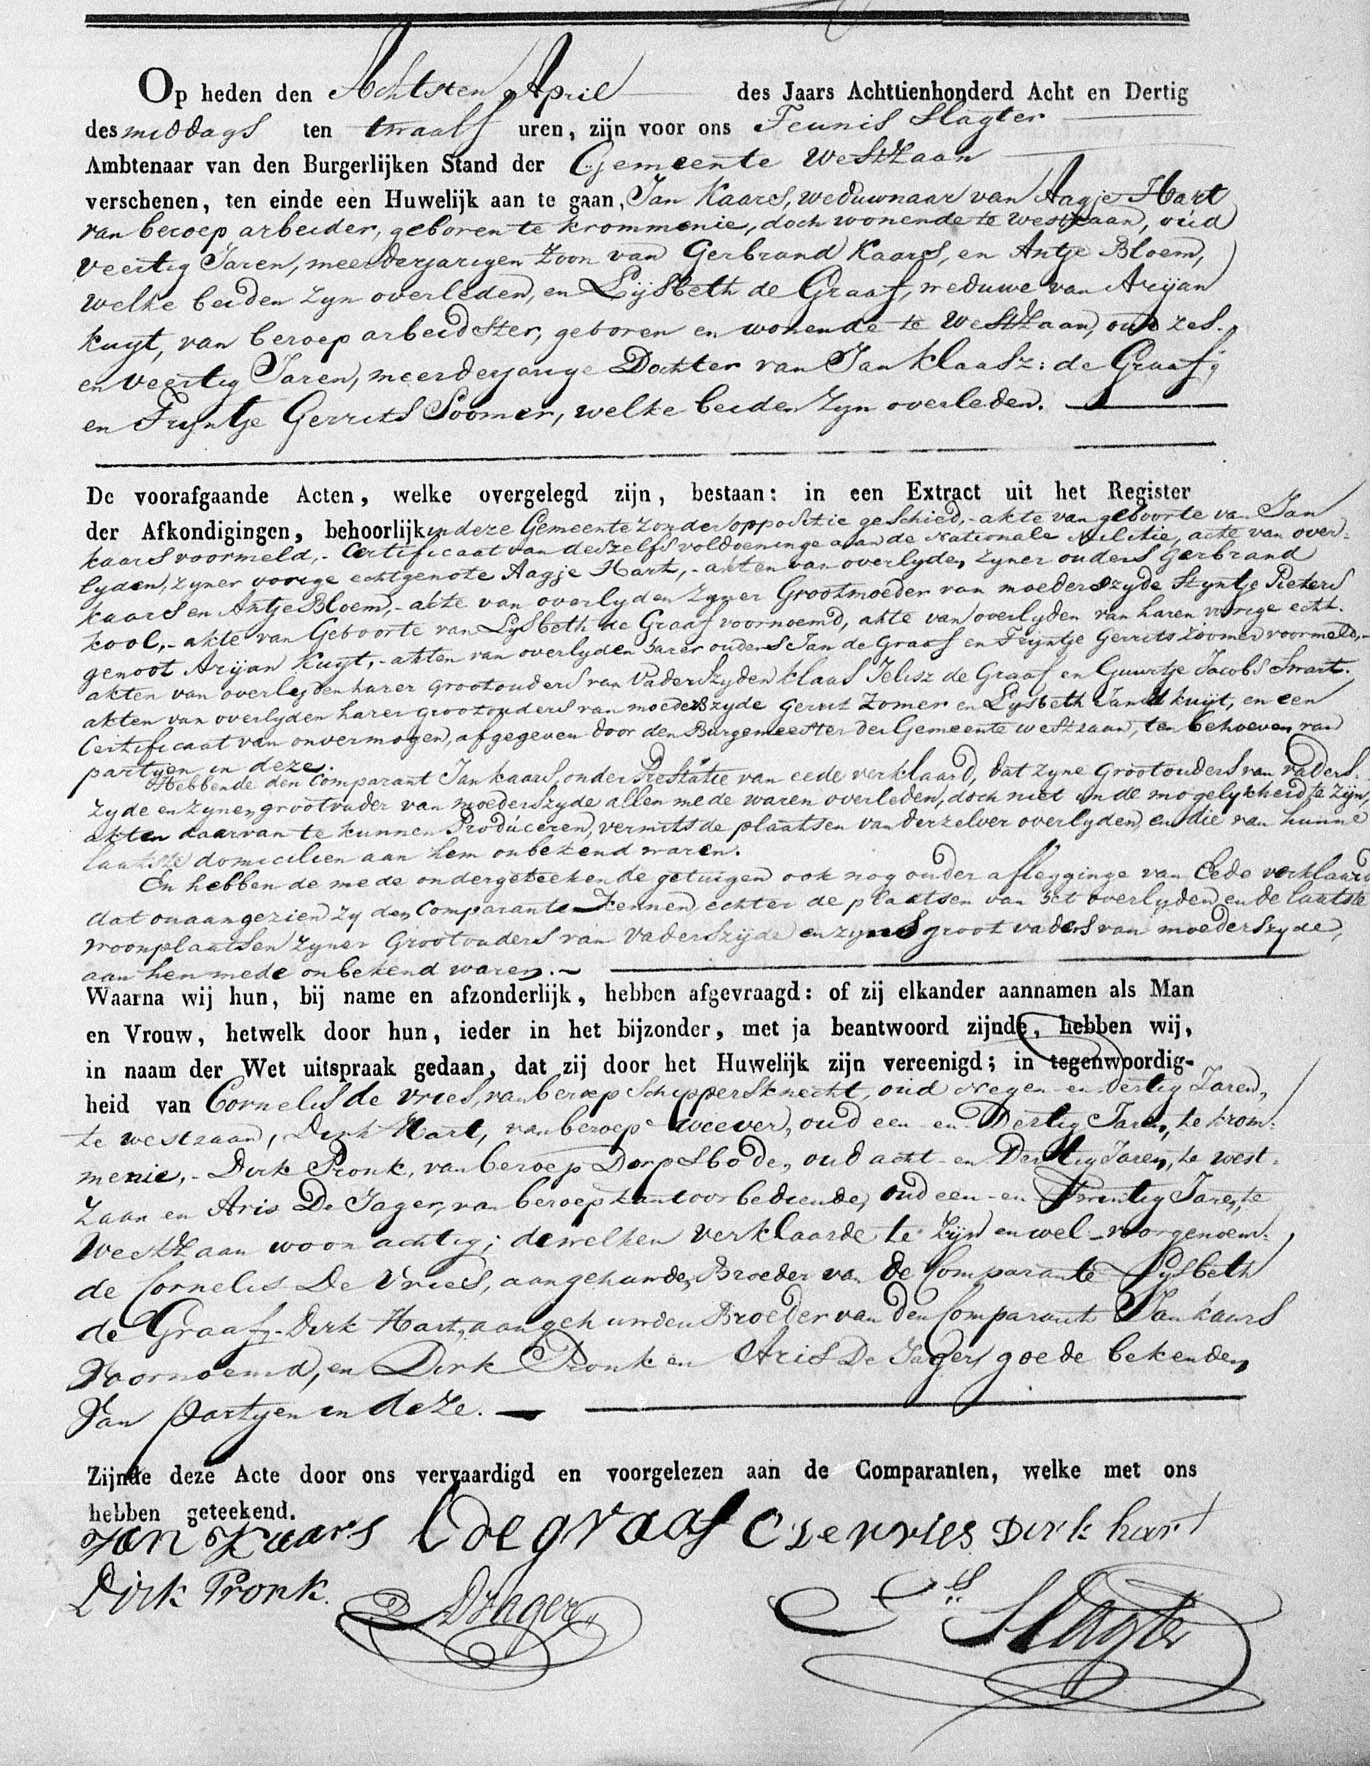 Op heden den Achtsten April des Jaars Achttienhonderd Acht en Dertig
des middags ten twaalf uren, zijn voor ons Teunis Slagter
Ambtenaar van den Burgerlijken Stand der Gemeente Westzaan
verschenen, ten einde een Huwelijk aan te gaan, Jan Kaars, weduwnaar van Aagje Hart
van beroep arbeider, geboren te krommenie, doch wonende te westzaan, oud
veertig Jaren, meerderjarigen Zoon van Gerbrand Kaars, en Antje Bloem,
welke beiden zyn overleden, en Lijsbeth de Graaf, weduwe van Arijan
kuyt, van beroep arbeidster, geboren en wonende te Westzaan, oud zes-
en veertig Jaren, meerderjarige Dochter van Jan Klaasz: de Graaf,
en Trijntje Gerrits Soomer, welke beiden zyn overleden.
De voorafgaande Acten, welke overgelegd zijn, bestaan: in een Extract uit het Register
der Afkondigingen, behoorlijk in deze Gemeente zonder oppositie geschied,- akte van geboorte van Jan
kaars voormeld,- Certificaat van deszelfs voldoeninge aan de Nationale Militie, acte van over-
lyden, zyner vorige echtgenote Aagje Hart,- akten van overlyden zyner ouders Gerbrand
kaars en Antje Bloem,- akte van overlyden zyner Grootmoeder van moederszyde Styntje Pieters
kool,- akte van Geboorte van Lysbeth de Graaf voornoemd, akte van overlyden van haren vorige echt-
genoot Arijan Kuyt,- akten van overlyden harer ouders Jan de Graaf en Trijntje Gerrits Zoomer voormeld,-
akten van overlyden harer grootouders van Vaderszyden klaas Jelisz de Graaf en Guurtje Jacobs Swart.
akten van overlyden harer grootouders van moederszyde Gerrit Zomer en Lysbeth Jans kuijt, en een
Certificaat van onvermogen, afgegeven door den Burgemeester der Gemeente westzaan, ten behoeven van
partyen in deze.
Hebbende den Comparant Jan kaars, onder Prestatie van eede verklaard, dat zyne Grootouders van vaders-
zyde en zynen grootvader van moederszyde allen mede waren overleden, doch niet in de mogelykheid te zijn,
akten daarvan te kunnen Produceren, vermits de plaatsen van derzelver overlyden, en die van hunne
laatste domicilien aan hem onbekend waren.
En hebben de mede ondergeteekende getuigen ook nog onder aflegginge van Eede verklaard
dat onaangezien zy den Comparante kennen, echter de plaatsen van het overlyden en de laatste
woonplaatsen zyner Grootouders van vaderszijde en zyns grootvaders van moederszyde,
aan hen mede onbekend waren.
Waarna wij hun, bij name en afzonderlijk, hebben afgevraagd: of zij elkander aannamen als Man
en Vrouw, hetwelk door hun, ieder in het bijzonder, met ja beantwoord zijnde, hebben wij,
in naam der Wet uitspraak gedaan, dat zij door het Huwelijk zijn vereenigd; in tegenwoordig-
heid van Cornelis de Vries, van beroep Schippersknecht, oud Negen- en dertig Jaren,
te westzaan, Dirk Hart, van beroep weever, oud een- en Dertig Jaren, te krom-
menie,- Dirk Pronk, van beroep Dorpsbode, oud acht- en Dertig Jaren, te west-
zaan en Aris De Jager, van beroep kantoorbediende, oud een- en Twintig Jaren, te
Westzaan woonachtig; dewelken verklaarde te zijn en wel voorgenoem-
de Cornelis De Vries, aangehuwden Broeder van de Comparante Lysbeth
de Graaf,- Dirk Hart, aangehuwden Broeder van den Comparant Jan kaars
voornoemd, en Dirk Pronk en Aris De Jager goede bekenden
van partyen in deze.
Zijnde deze Acte door ons vervaardigd en voorgelezen aan de Comparanten, welke met ons
hebben geteekend.
Jan Kaars L de graaf C de vries Dirk hart
Dirk Pronk. A D Jager Ts Slagter